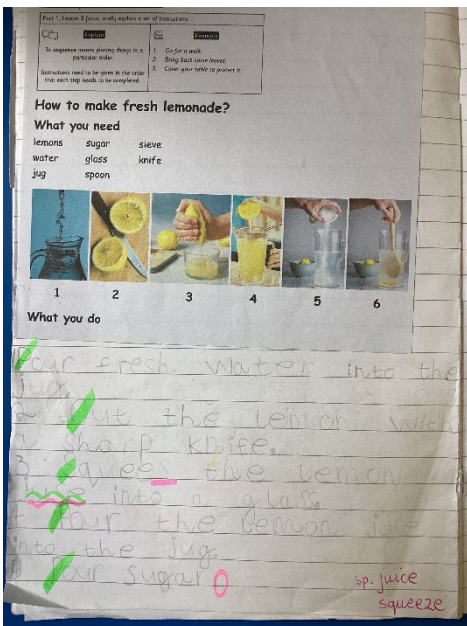 Part 1, Lesson 3 focus: orally explain a set of instructions
Explain
Example
To sequence means placing things in a
particular order.
Instructions need to be given in the order
that each step needs to be completed.
1. Go for a walk.
2. Bring back some leaves.
3. Cover your table to protect it.
How to make fresh lemonade?
What you need
lemons sugar sieve
water glass knife
jug spoon
1 2 3 4 5 6
What you do
Pour fresh water into the
jug.
2 Cut the lemon with
a sharp knife.
3 squees the lemon
into a glass.
4 Pour the lemon juce
into the jug.
Pour sugar
sp. juice
squeeze